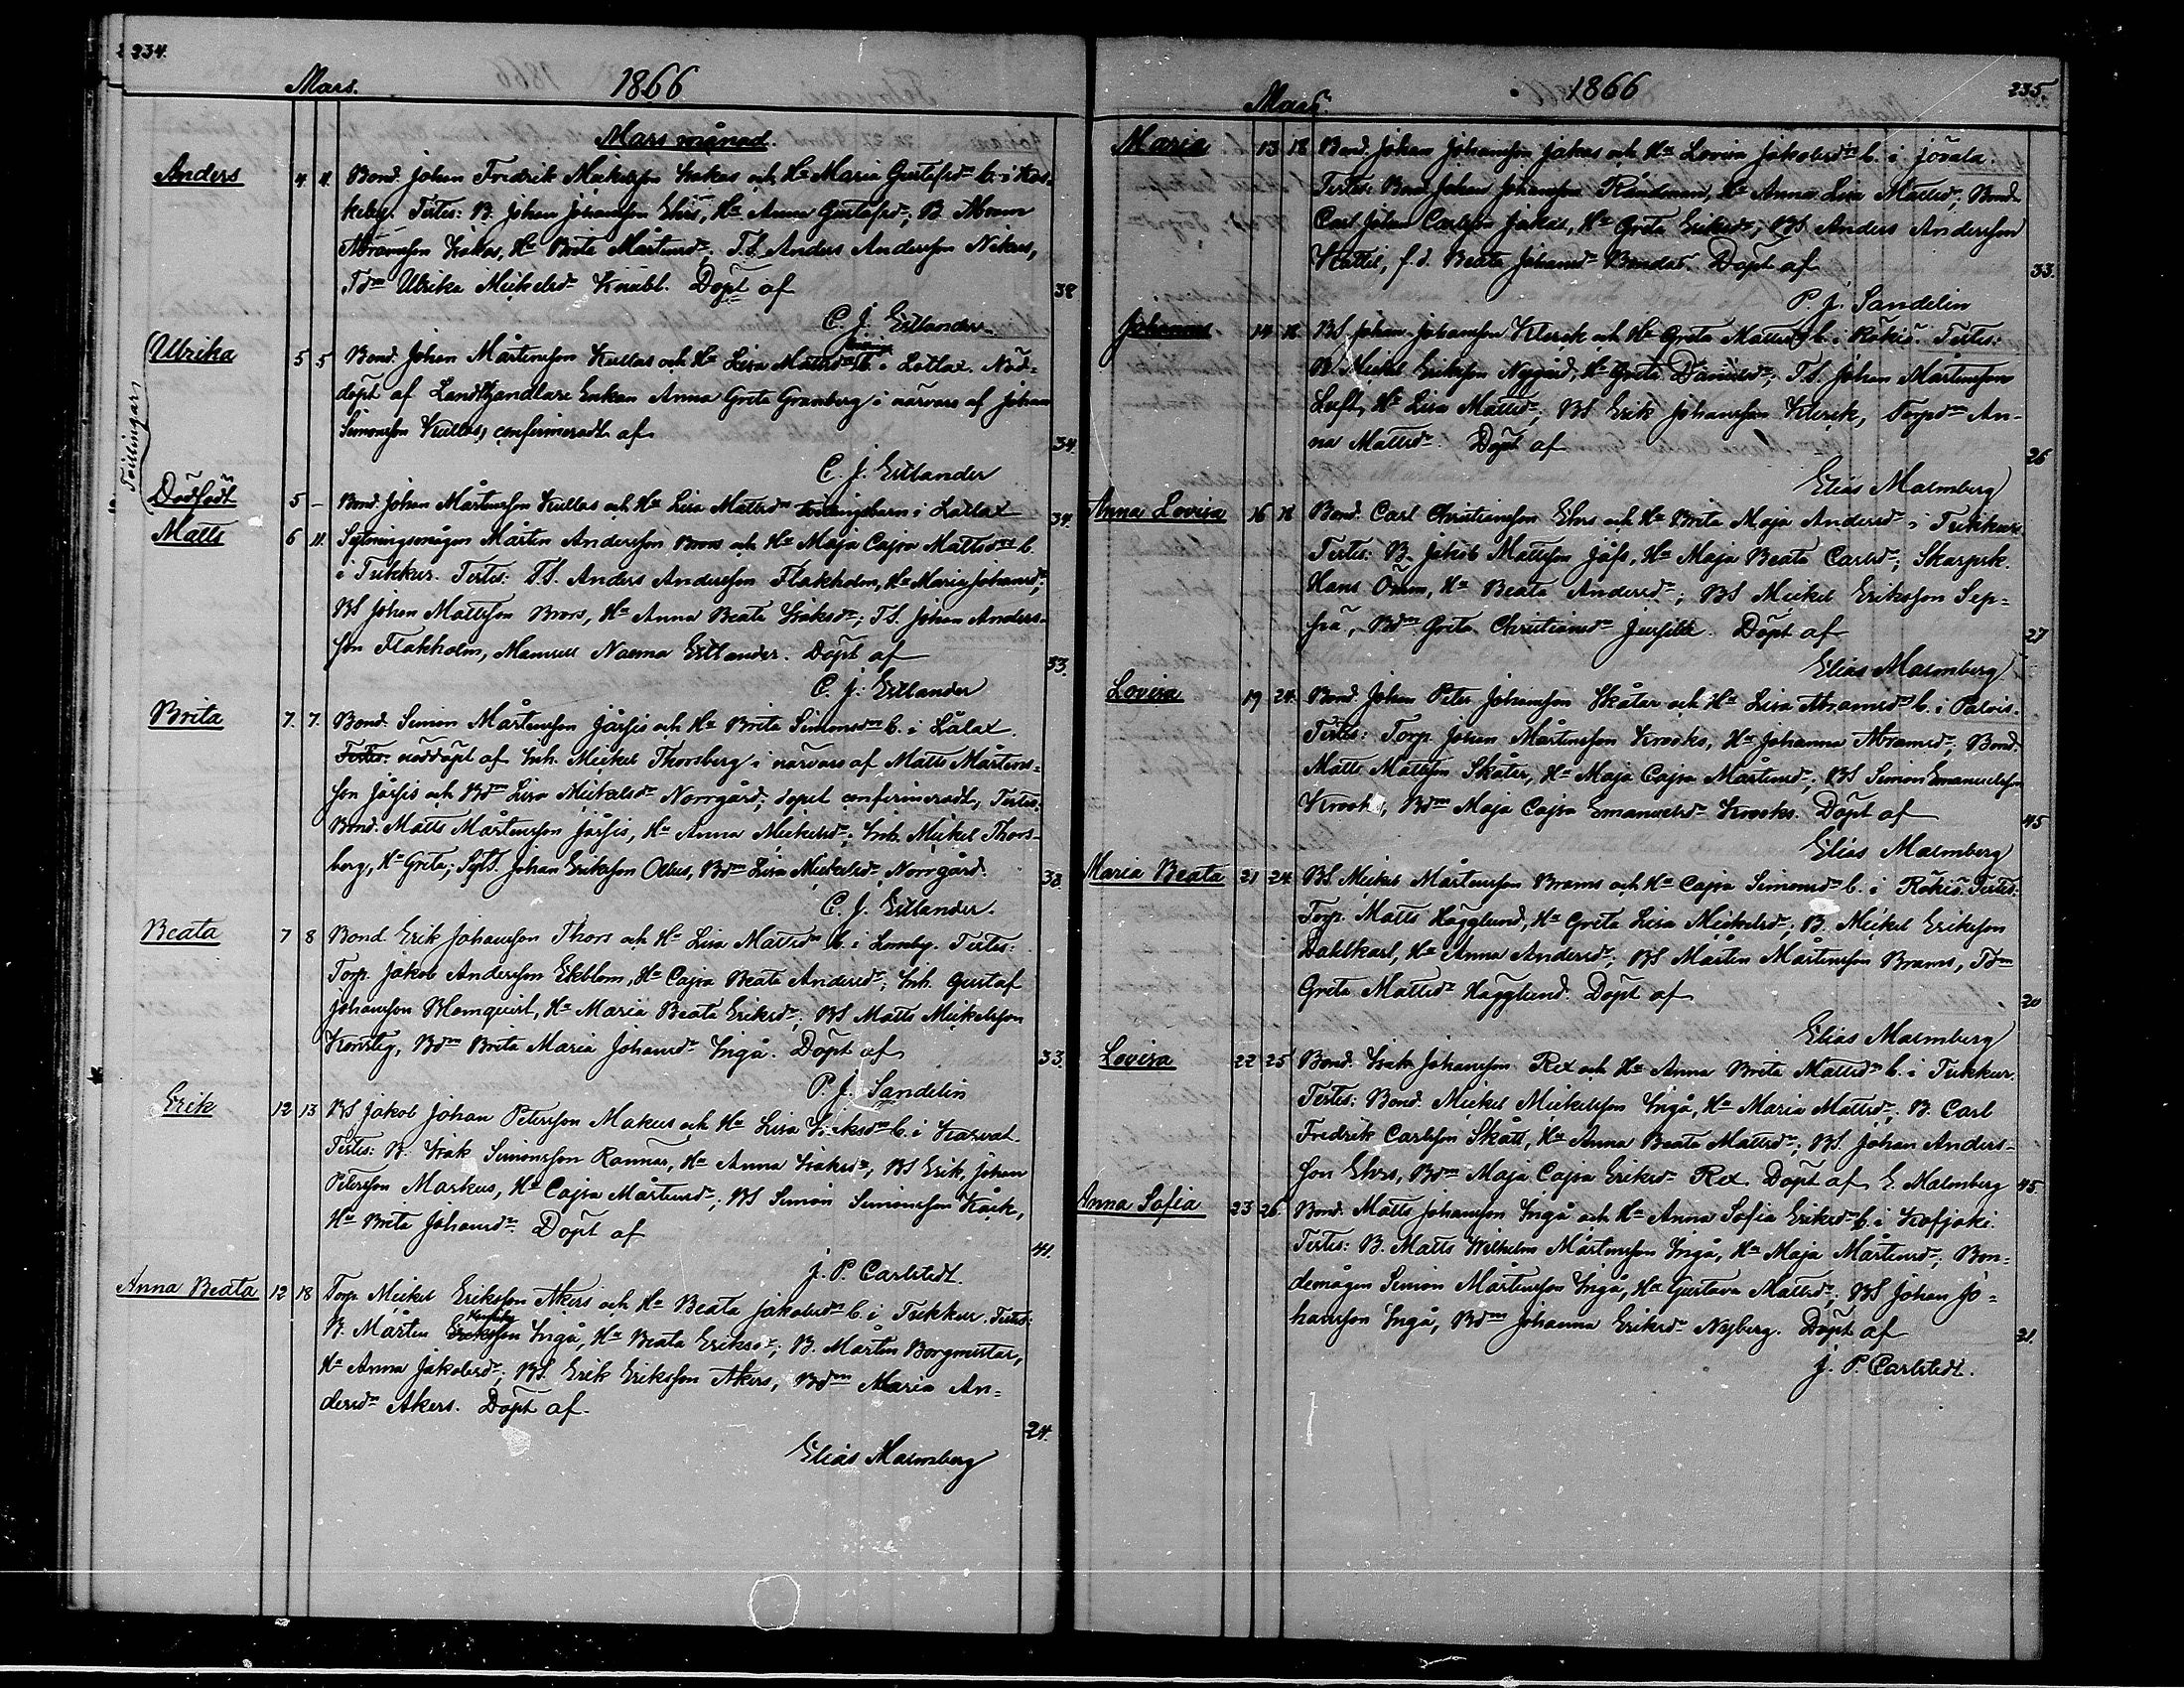 234.
Mars. 1866
Mars månad.
Anders 4 11. Bond. Johan Fredrik Mickelsson Isakas och Hu Maria Gustafsdr b. i Kas-
keby. Testes: B. Johan Johansson Ehrs, Hu Anna Gustafsdr; B. Abram
Abramsson Isakas, Hu Brita Mårtensdr; T.S. Anders Andersson Nikus,
Tdn Ulrika Mickelsdr Knubb. Döpt af 38
C. J. Estlander
Tvillingar
Ulrika 5 5 Bond. Johan Mårtensson Kullas och Hu Lisa Mattsdr b. i Lotlax. Nöd-
döpt af Landthandlare Enkan Anna Greta Granberg i närvaro af Johan
Simonsson Kullas, confirmeradt af 34.
C. J. Estlander
Dödfödt 5 – Bond. Johan Mårtensson Kullas och Hu Lisa Mattsdr tvillingebarn i Lotlax 34.
Matts 6 11. Sytningsmågen Mårten Andersson Brors och Hu Maja Cajsa Mattsdr b.
i Tukkur. Testes: T.S. Anders Andersson Flakholm, Hu Maria Johansdr;
BS Johan Mattsson Brors, Hu Anna Beata Isaksdr; T.S. Johan Anders-
son Flakholm, Mamsell Naema Estlander. Döpt af 33.
C. J. Estlander
Brita 7. 7. Bond. Simon Mårtensson Jårfis och Hu Brita Simonsdr b. i Lålax.
Testes: nöddöpt af Inh. Mickel Thorsberg i närvaro af Matts Mårtens-
son Jårfis och Bdn Lisa Mickelsdr Norrgård; dopet confirmeradt, Testes:
Bond. Matts Mårtensson Jårfis, Hu Anna Mickelsdr; Inh. Mickel Thors-
berg, Hu Greta; SytS. Johan Eriksson Olkus, Bdn Lisa Mickelsdr Norrgård. 38.
C. J. Estlander.
Beata 7 8 Bond. Erik Johansson Thors och Hu Lisa Mattsdr b. i Lomby. Testes:
Torp. Jakob Andersson Ekblom, Hu Cajsa Beata Andersdr; Inh. Gustaf
Johansson Blomquist, Hu Maria Beata Eriksdr; BS Matts Mickelsson
Konstig, Bdn Brita Maria Johansdr Ingå. Döpt af 33.
P. J. Sandelin
Erik 12 13 BS Jakob Johan Petersson Makus och Hu Lisa Isaksdr b. i Karvat.
Testes: B. Isak Simonsson Rannar, Hu Anna Isaksdr; BS Erik Johan
Petersson Markus, Hu Cajsa Mårtensdr; BS Simon Simonsson Kåck,
Hu Brita Johansdr. Döpt af 41.
J. P. Carlstedt.
Anna Beata 12 18 Torp. Mickel Eriksson Akers och Hu Beata Jakobsdr b. i Tukkur. Testes:
B. Mårten Eriksson Ingå, Hu Beata Eriksdr; B. Mårten Borgmestar,
Hu Anna Jakobsdr; BS. Erik Eriksson Akers, Bdn Maria An-
dersdr Akers. Döpt af 24.
Elias Malmberg
235.
Mars. 1866
Maria 13 18 Bond. Johan Johansson Jakas och Hu Lovisa Jakobsdr b. i Jövala.
Testes: Bond. Johan Johansson Råndman, Hu Anna Lisa Mattsdr; Bond.
Carl Johan Carlsson Jakas, Hu Greta Eriksdr; BS Anders Andersson
Kattil, f.d. Beata Johansdr Bondas. Döpt af 33.
P. J. Sandelin
Johannes 14 18 BS. Johan Johansson Klerck och Hu Greta Mattsdr b. i Rökiö. Testes:
B. Mickel Eriksson Nygård, Hu Greta Danielsdr; T.S. Johan Mårtensson
Luft, Hu Lisa Mattsdr; BS Erik Johansson Klerck, Torpdn An-
na Mattsdr. Döpt af 26
Elias Malmberg
Anna Lovisa 16 18 Bond. Carl Christiansson Ehrs och Hu Brita Maja Andersdr i Tukkur.
Testes: B. Jakob Mattsson Jåfs, Hu Maja Beata Carlsdr; Skarpsk.
Hans Orrm, Hu Beata Andersdr; BS Mickel Eriksson Sep-
frå, Bdn Greta Christiansdr. Döpt af 27
Elias Malmberg
Lovisa 19 24. Bond. Johan Peter Johansson Skåtar och Hu Lisa Abramsdr b. i Palvis.
Testes: Torp. Johan Mårtensson Krooks, Hu Johanna Abramsdr; Bond.
Matts Mattsson Skåtar, Hu Maja Cajsa Mårtensdr; BS Simon Emanuelsson
Krooks, Bdn Maja Cajsa Emanuelsdr Krooks. Döpt af 45
Elias Malmberg
Maria Beata 21 24. BS. Mickel Mårtensson Brams och Hu Cajsa Simonsdr b. i Rökiö. Testes:
Torp. Matts Hägglund, Hu Greta Lisa Mickelsdr; B. Mickel Eriksson
Dahlkarl, Hu Anna Andersdr; BS Mårten Mårtensson Brams, Tdn
Greta Mattsdr Hägglund. Döpt af 20
Elias Malmberg
Lovisa 22 25 Bond. Isak Johansson Rex och Hu Anna Brita Mattsdr b. i Tukkur.
Testes: Bond. Mickel Mickelsson Ingå, Hu Maria Mattsdr; B. Carl
Fredrik Carlsson Skått, Hu Anna Beata Mattsdr; BS Johan Anders-
son Ehrs, Bdn Maja Cajsa Eriksdr Rex. Döpt af E. Malmberg 45.
Anna Sofia 23 26 Bond. Matts Johansson Ingå och Hu Anna Sofia Eriksdr b. i Kofjoki.
Testes: B. Matts Wilhelm Mårtensson Ingå, Hu Maja Mårtensdr; Bon-
demågen Simon Mårtensson Ingå, Hu Gustava Mattsdr; BS Johan Jo-
hansson Ingå, Bdn Johanna Eriksdr Nyberg. Döpt af 21.
J. P. Carlstedt.